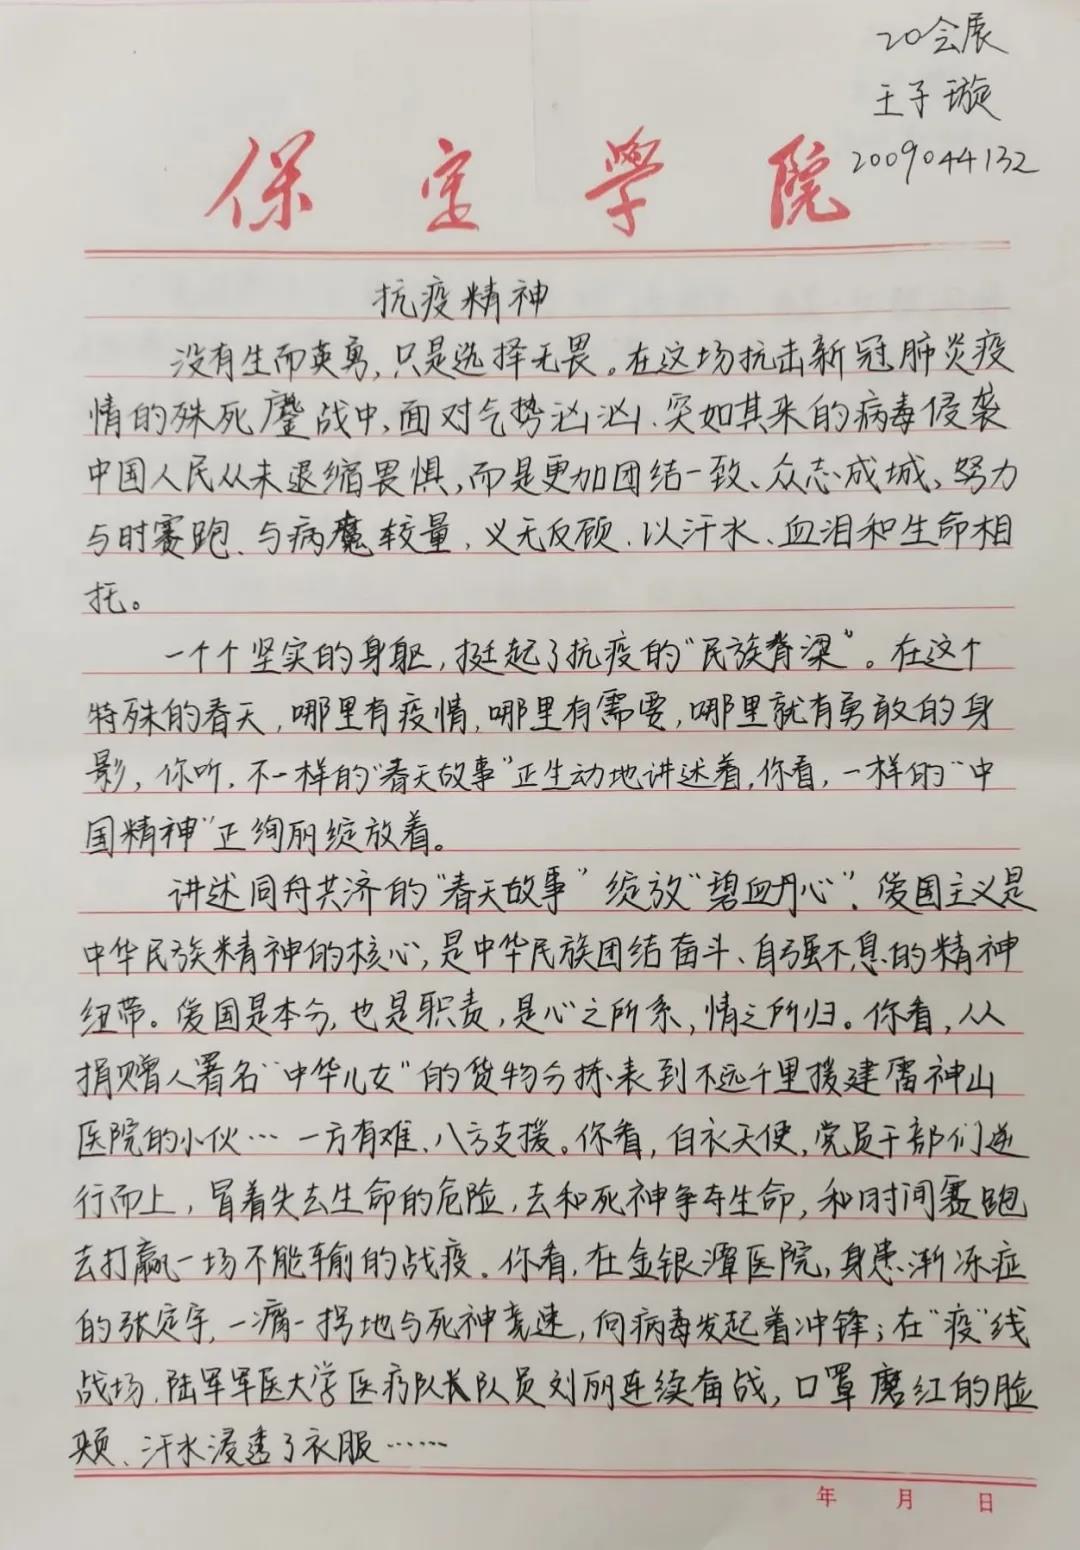 20会展
王子璇
2009044132
保定学院
抗疫精神
没有生而英勇,只是选择无畏。在这场抗击新冠肺炎疫
情的殊死鏖战中,面对气势汹汹、突如其来的病毒侵袭
中国人民从未退缩畏惧,而是更加团结一致、众志成城、努力
与时赛跑、与病魔较量,义无反顾、以汗水、血泪和生命相
托。
一个个坚实的身躯,挺起了抗疫的“民族脊梁”。在这个
特殊的春天,哪里有疫情,哪里有需要,哪里就有勇敢的身
影,你听,不一样的“春天故事”正生动地讲述着,你看,一样的“中
国精神”正绚丽绽放着。
讲述同舟共济的“春天故事”绽放“碧血丹心”、爱国主义是
中华民族精神的核心,是中华民族团结奋斗、自强不息的精神
纽带。爱国是本分,也是职责,是心之所系,情之所归。你看,从
捐赠人署名“中华儿女”的货物分拣表到不远千里援建雷神山
医院的小伙…一方有难、八方支援。你看,白衣天使,党员干部们逆
行而上,冒着失去生命的危险,去和死神争夺生命,和时间赛跑
去打赢一场不能输的战疫。你看,在金银潭医院,身患渐冻症
的张定宇,一瘸一拐地与死神竞速,向病毒发起着冲锋;在“疫”线
战场,陆军军医大学医疗队队员刘丽连续奋战,口罩磨红的脸
颊、汗水浸透了衣服……
年 月 日